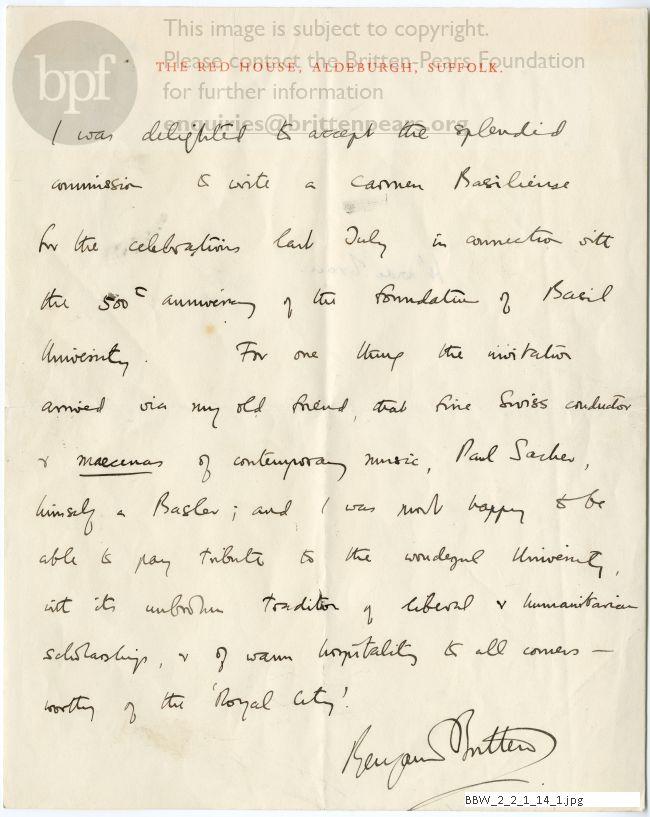 This image is subject to copyright.
Please contact the Britten-Pears Foundation
for further information
enquiries@brittenpears.org
bpf
THE RED HOUSE, ALDEBURGH, SUFFOLK.
I was delighted to accept the splendid
commission to write a Carmen Basiliense
for the celebrations last July in connection with
the 500th anniversary of the foundation of Basil
University. For one thing the invitation
arrived via my old friend, that fine Swiss conductor
& maecenas of contemporary music, Paul Sacher,
himself a Basler; and I was most happy to be
able to pay tribute to the wonderful University,
with its unbroken tradition of liberal & humanitarian
scholarship, & of warm hospitality to all comers —
worthy of the 'Royal City'.
Benjamin Britten
BBW_2_2_1_14_1.jpg